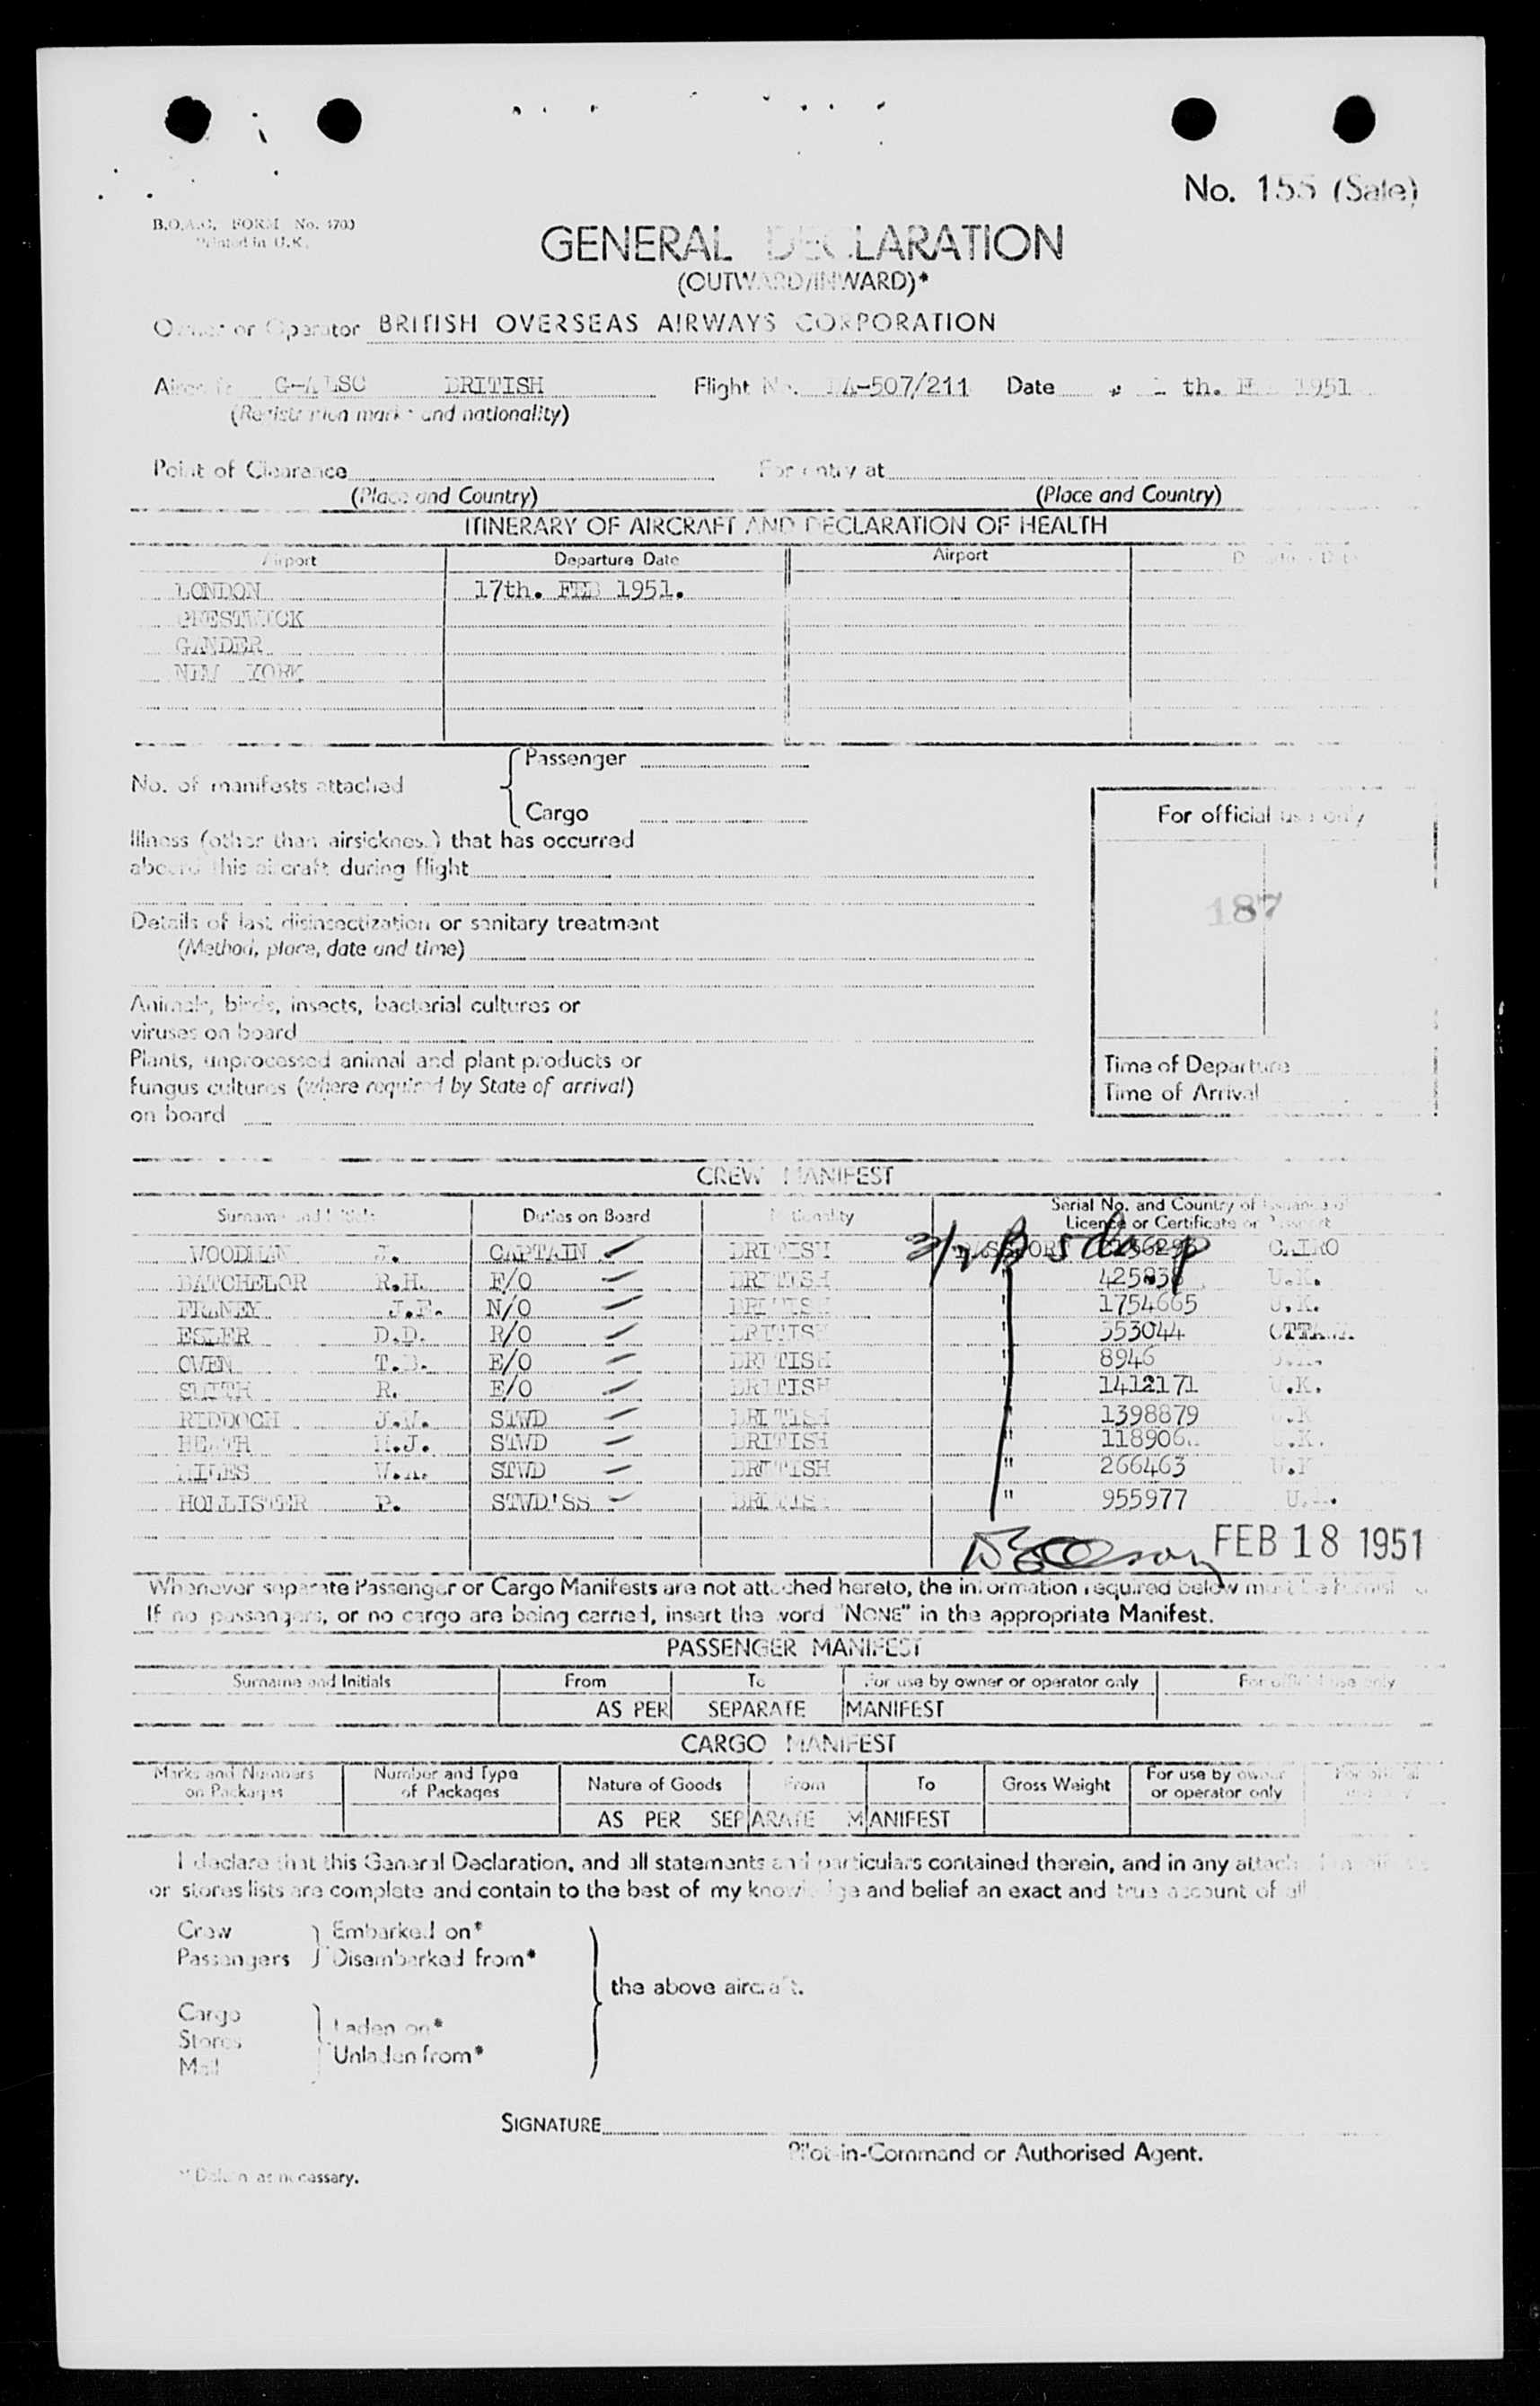 No. 155 (Sale)
B.O.A.C. FORM No. 1703
Printed in U.K.
GENERAL DECLARATION
(OUTWARD/INWARD)*
Owner or Operator BRITISH OVERSEAS AIRWAYS CORPORATION
Aircraft G-ALSC BRITISH Flight No. BA-507/211 Date th. FEB 1951
(Registration marks and nationality)
Point of Clearance For entry at
(Place and Country) (Place and Country)
ITINERARY OF AIRCRAFT AND DECLARATION OF HEALTH
Airport Departure Date Airport Departure Date
LONDON 17th. FEB 1951.
PRESTWICK
GANDER
NEW YORK
No. of manifests attached
Passenger
Cargo
Illness (other than airsickness) that has occurred
aboard this aircraft during flight
Details of last disinsectization or sanitary treatment
(Method, place, date and time)
Animals, birds, insects, bacterial cultures or
viruses on board
Plants, unprocessed animal and plant products or
fungus cultures (where required by State of arrival)
on board
For official use only
187
Time of Departure
Time of Arrival
CREW MANIFEST
Surname and Initials Duties on Board Nationality Serial No. and Country of Issuance of
Licence or Certificate or Passport
WOODMAN CAPTAIN BRITISH PASSPORT CAIRO
BATCHELOR R.H. F/O BRITISH " U.K.
FRANEY J.F. N/O BRITISH " 1754665 U.K.
ESLER D.D. R/O BRITISH " 553044 OTTAWA
OWEN T. E/O BRITISH " 8946 U.K.
SMITH R. E/O BRITISH " 1412171 U.K.
RIDDOCH STWD BRITISH " 1398879 U.K
HEATH STWD BRITISH " 118906 U.K.
STWD BRITISH " 266463 U.K
HOLLISTER P. STWD'SS BRITISH " 955977 U.K.
FEB 18 1951
Whenever separate Passenger or Cargo Manifests are not attached hereto, the information required below must be furnished
If no passengers, or no cargo are being carried, insert the word "NONE" in the appropriate Manifest.
PASSENGER MANIFEST
Surname and Initials From To For use by owner or operator only For official use only
AS PER SEPARATE MANIFEST
CARGO MANIFEST
Marks and Numbers on Packages Number and Type of Packages Nature of Goods From To Gross Weight For use by owner or operator only For official use only
AS PER SEPARATE MANIFEST
I declare that this General Declaration, and all statements and particulars contained therein, and in any attached manifests
or stores lists are complete and contain to the best of my knowledge and belief an exact and true account of all
Crew Embarked on*
Passengers Disembarked from*
the above aircraft.
Cargo
Stores Laden on*
Mail Unladen from*
SIGNATURE
Pilot-in-Command or Authorised Agent.
*Delete as necessary.